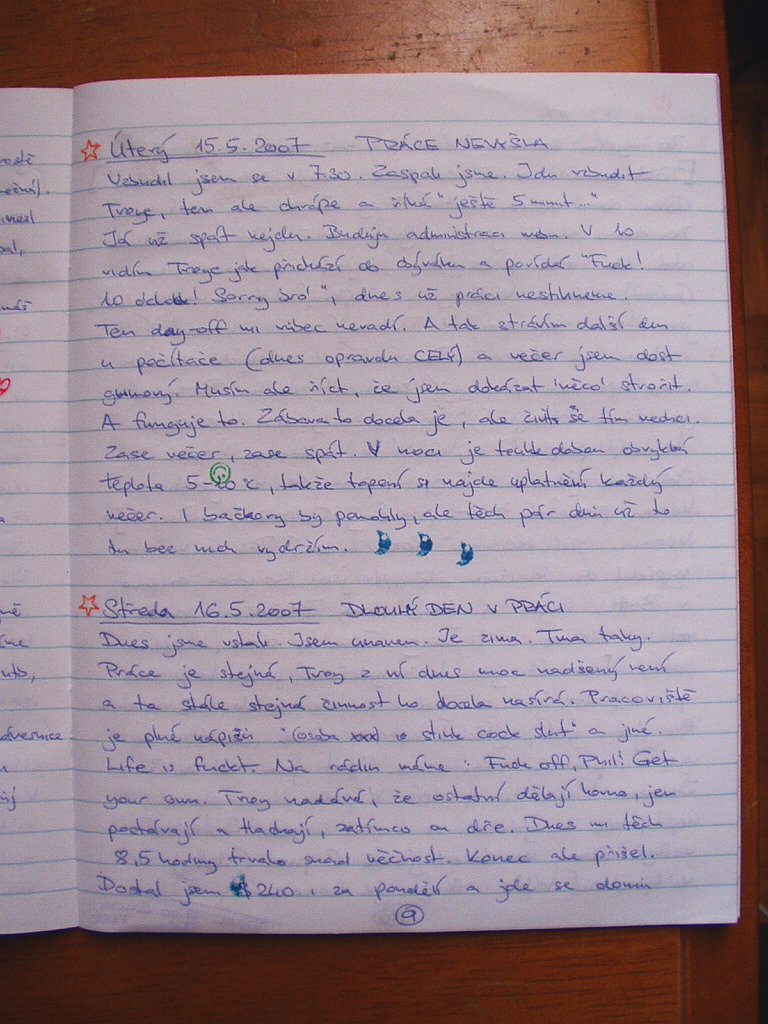 Úterý 15.5.2007 PRÁCE NEVYŠLA
Vzbudil jsem se v 7:30. Zaspali jsme. Jdu vzbudit
Troye, ten ale chrápe a říká "ještě 5 minut..."
Já už spát nejdu. Buduju administraci. V 10
vidím Troye jak přichází do obýváku a povídá "Fuck!
10 oclock! Sorry bro'", dnes už práci nestihneme.
Ten day-off mi vůbec nevadí. A tak strávím další den
u počítače (dnes opravdu CELÝ) a večer jsem dost
gumový. Musím ale říct, že jsem dokázal 'něco' stvořit.
A funguje to. Zábava to docela je, ale živit se tím nechci.
Zase večer, zase spát. V noci je touhle dobou obvyklá
teplota 5-10°C, takže topení si najde uplatnění každý
večer. I bačkory by pomohly, ale těch pár dnů už to
tu bez nich vydržím.
Středa 16.5.2007 DLOUHÝ DEN V PRÁCI
Dnes jsme vstali. Jsem unaven. Je zima. Tma taky.
Práce je stejná, Troy z ní dnes moc nadšený není
a ta stále stejná činnost ho docela nasírá. Pracoviště
je plné nápisů "(osoba xxx) is stink cock slut" a jiné.
Life is fuckt. Na rádiu máme: Fuck off, Phil! Get
your own. Troy nadává, že ostatní dělají hovno, jen
postávají a tlachají, zatímco on dře. Dnes mi těch
8,5 hodiny trvalo snad věčnost. Konec ale přišel.
Dostal jsem $240 i za pondělí a jde se domů
9